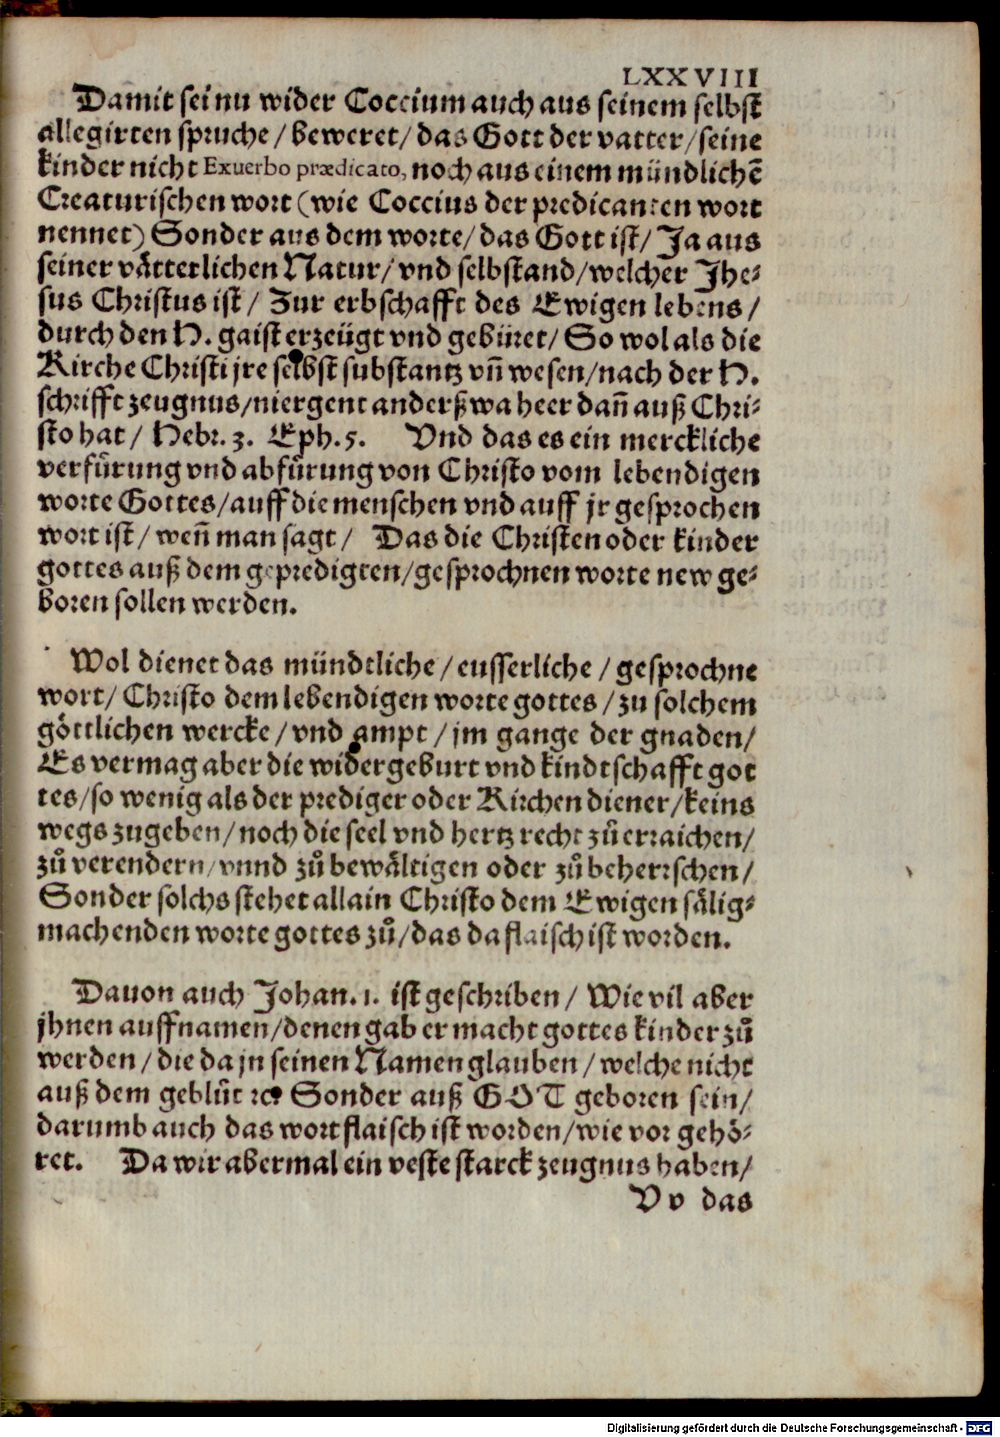 LXXVIII
Damit sei nu wider Coccium auch aus seinem selbst
allegirten spruche / beweret / das Gott der vatter / seine
kinder nicht Ex uerbo prædicato, noch aus einem mündlichē
Creaturischen wort (wie Coccius der predicanten wort
nennet) Sonder aus dem worte / das Gott ist / Ja aus
seiner vätterlichen Natur / vnd selbstand / welcher Jhe-
sus Christus ist / Zur erbschafft des Ewigen lebens /
durch den H. gaist erzeügt vnd gebüret / So wol als die
Kirche Christi jre selbst substantz vñ wesen / nach der H.
schrifft zeugnus / niergent anderß wa heer dañ auß Chri-
sto hat / Hebr. 3. Eph. 5. Vnd das es ein merckliche
verfürung vnd abfürung von Christo vom lebendigen
worte Gottes / auff die menschen vnd auff jr gesprochen
wort ist / weñ man sagt / Das die Christen oder kinder
gottes auß dem gepredigten / gesprochnen worte new ge-
boren sollen werden.
Wol dienet das mündtliche / eusserliche / gesprochne
wort / Christo dem lebendigen worte gottes / zu solchem
göttlichen wercke / vnd ampt / jm gange der gnaden /
Es vermag aber die widergeburt vnd kindtschafft got
tes / so wenig als der prediger oder Kirchen diener / keins
wegs zugeben / noch die seel vnd hertz recht zů erraichen /
zů verendern / vnnd zů bewältigen oder zů beherrschen /
Sonder solchs stehet allain Christo dem Ewigen sälig-
machenden worte gottes zů / das da flaisch ist worden.
Dauon auch Johan. 1. ist geschriben / Wie vil aber
jhnen auffnamen / denen gab er macht gottes kinder zů
werden / die da jn seinen Namen glauben / welche nicht
auß dem geblüt ꝛc. Sonder auß GOT geboren sein /
darumb auch das wort flaisch ist worden / wie vor gehö-
ret. Da wir abermal ein veste starck zeugnus haben /
Vv das
Digitalisierung gefördert durch die Deutsche Forschungsgemeinschaft - DFG